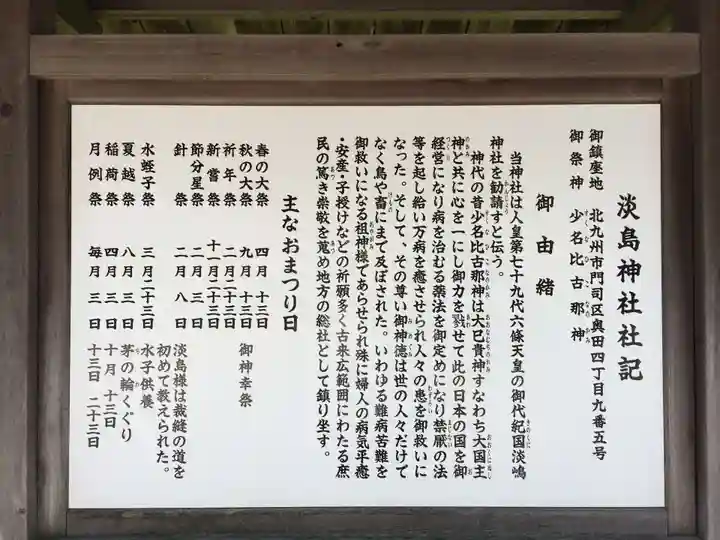 淡島神社社記
御鎮座地　北九州市門司区奥田四丁目九番五号
御祭神　少名比古那神
御由緒
当神社は人皇第七十九代六條天皇の御代紀国淡嶋
神社を勧請すと伝う。
神代の昔少名比古那神は大巳貴神すなわち大国主
神と共に心を一にし御力を戮せて此の日本の国を御
経営になり病を治むる薬法を御定めになり禁厭の法
等を起し給い万病を癒させられ人々の患を御救いに
なった。そして、その尊い御神徳は世の人々だけで
なく鳥や畜にまで及ぼされた。いわゆる難病苦難を
御救いになる祖神様であらせられ殊に婦人の病気平癒
・安産・子授けなどの祈願多く古来広範囲にわたる庶
民の篤き崇敬を蒐め地方の総社として鎮り坐す。
主なおまつり日
春の大祭　四月　十三日
秋の大祭　九月　十三日　御神幸祭
祈年祭　二月二十三日
新嘗祭　十一月二十三日
節分星祭　二月　三日
針祭　二月　八日　淡島様は裁縫の道を
初めて教えられた。
水蛭子祭　三月二十三日　水子供養
夏越祭　八月　三日　茅の輪くぐり
稲荷祭　四月　三日　十月　十三日
月例祭　毎月　三日　十三日　二十三日